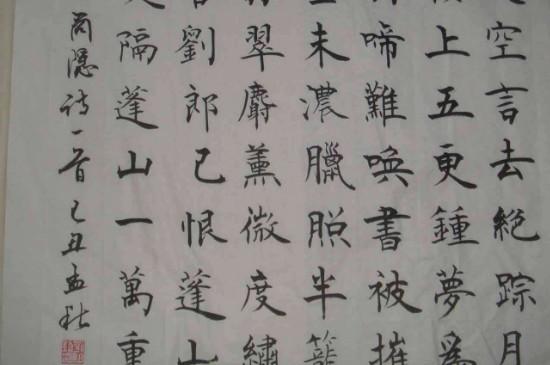 空言去絕踪月
上五更鍾夢為
啼難喚書被摧
未濃臘照半籠
翠麝薰微度繡
劉郎已恨蓬山
隔蓬山一萬重
商隱詩一首 己丑孟秋